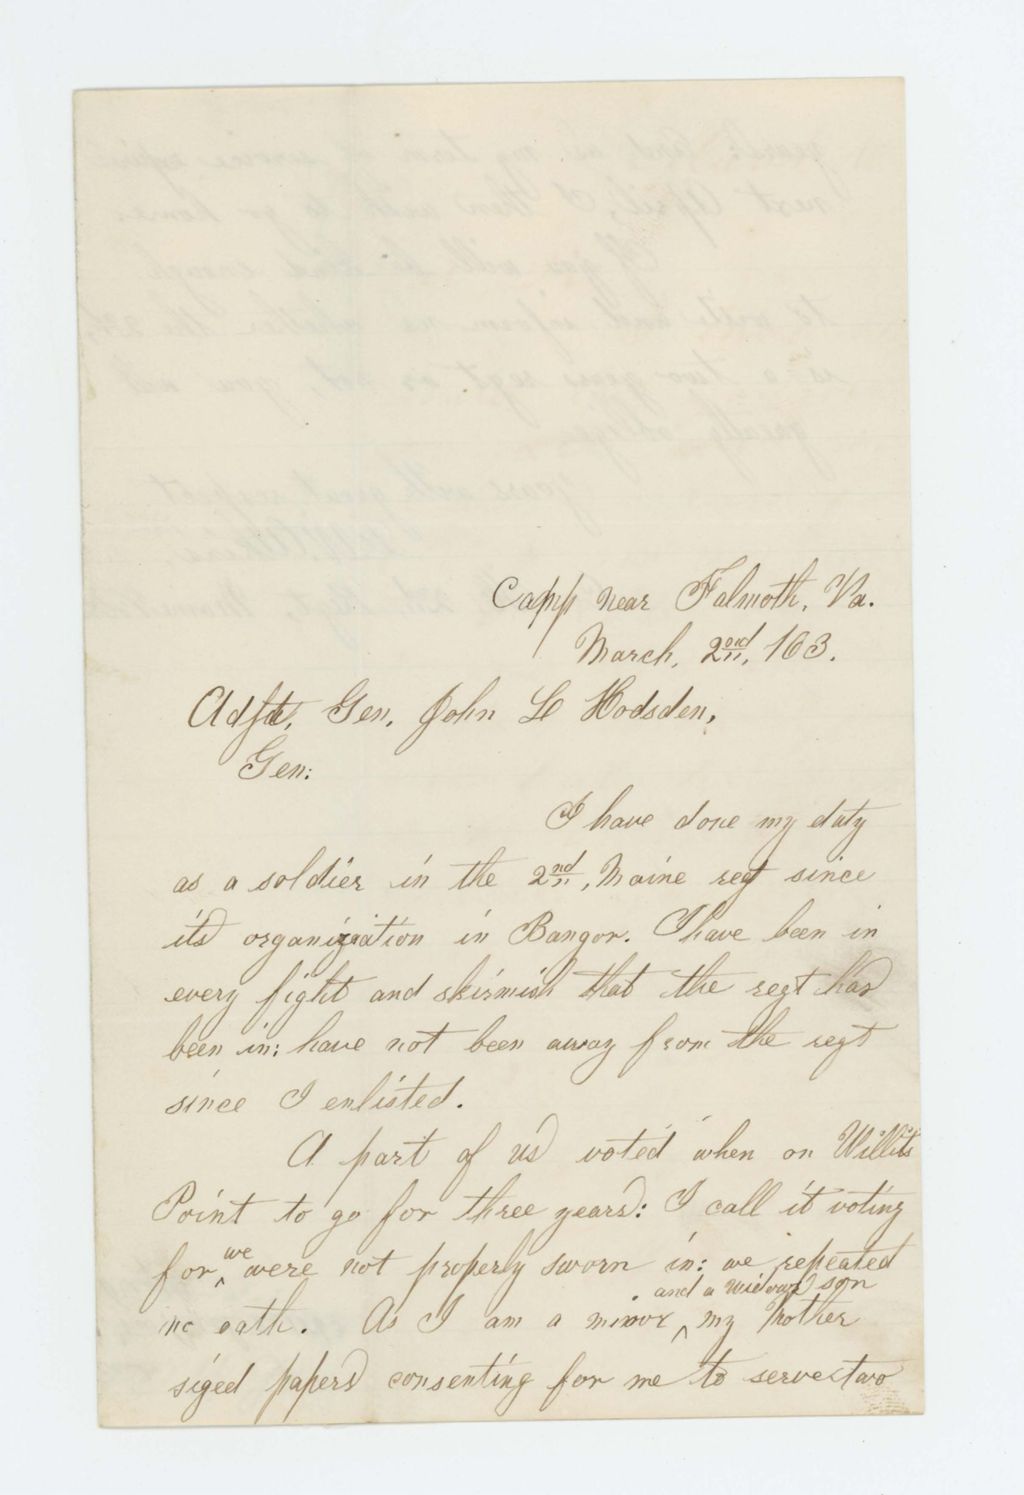 Camp near Falmoth, Va.
March, 2nd, 163.
Adjt, Gen, John L Hodsden,
Gen:
I have done my duty
as a soldier in the 2nd, Maine regt since
its organization in Bangor. I have been in
every fight and skirmish that the regt has
been in: have not been away from the regt
since I enlisted.
A part of us voted when on Willits
Point to go for three years: I call it voting
for we were not properly sworn in: we repeated
no oath. As I am a minor and a widows son my mother
siged papers consenting for me to serve two